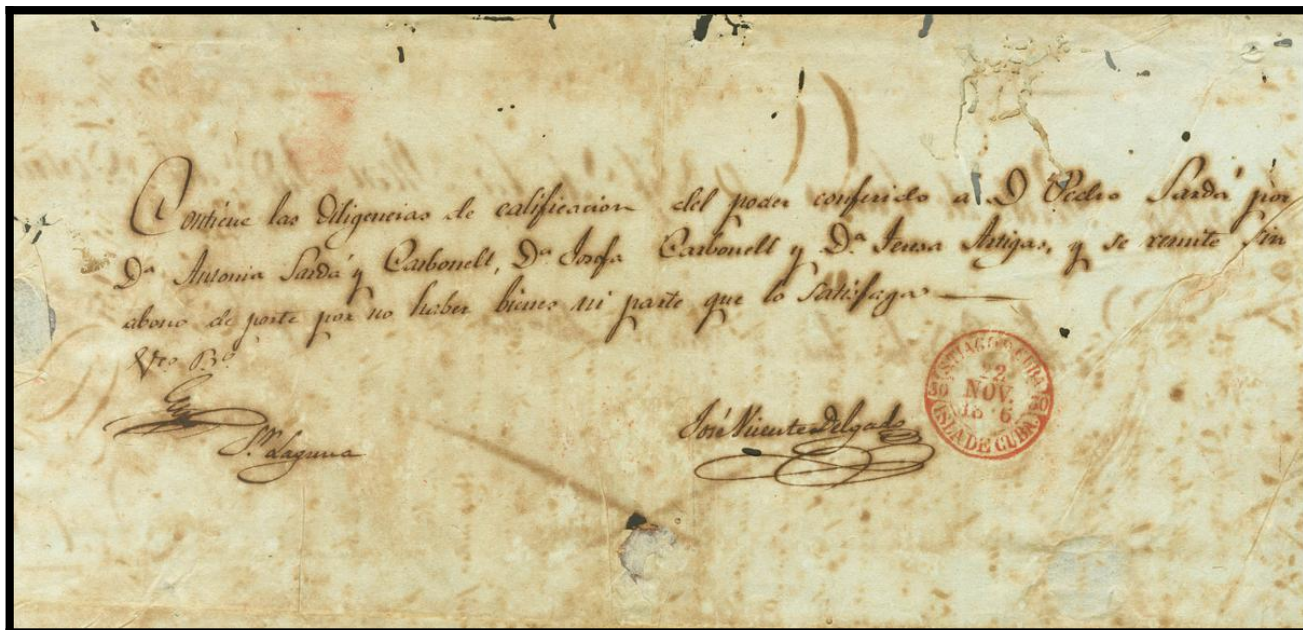 Contiene las diligencias de calificacion del poder conferido a D Pedro Sardá por
Dª Antonia Sardá y Carbonell, Dª Josefa Carbonell y Dª Teresa Artigas, y se remite sin
abono de porte por no haber bienes ni parte que lo satisfaga
Vto Bº
Laguna
José Vicente Delgado
STIAGO D CUBA
30 30
22
NOV.
ISLA DE CUBA